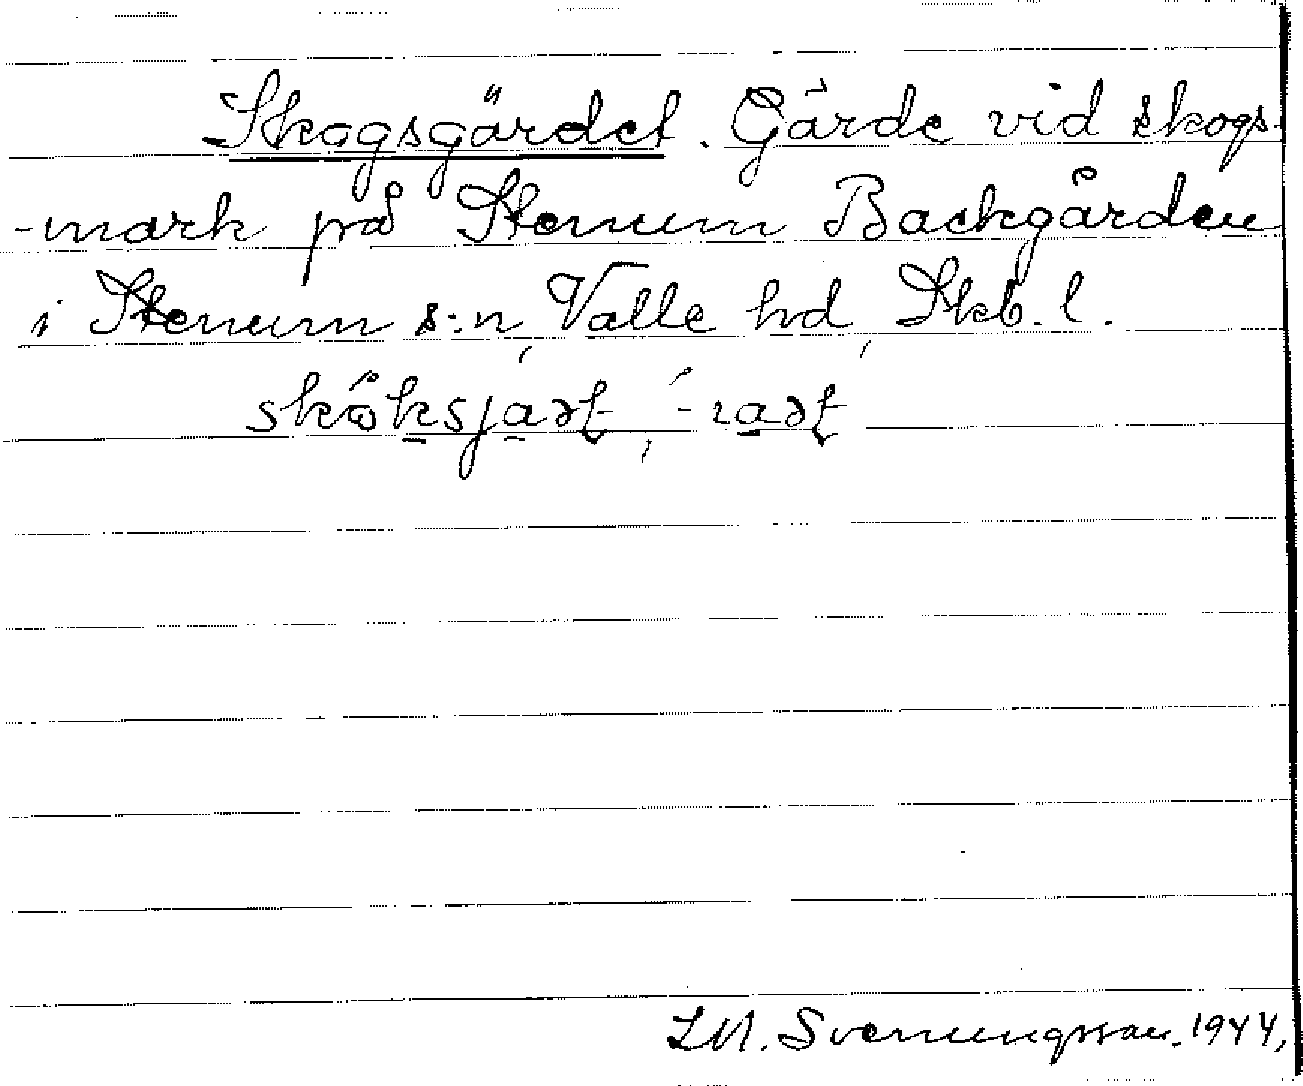 Skogsgärdet. Gärde vid skogs-
-mark på Stenum Backgården
i Stenum s:n, Valle hd, Skb. l.
skóksjat, -́rat
L.M. Svenungsson. 1944,